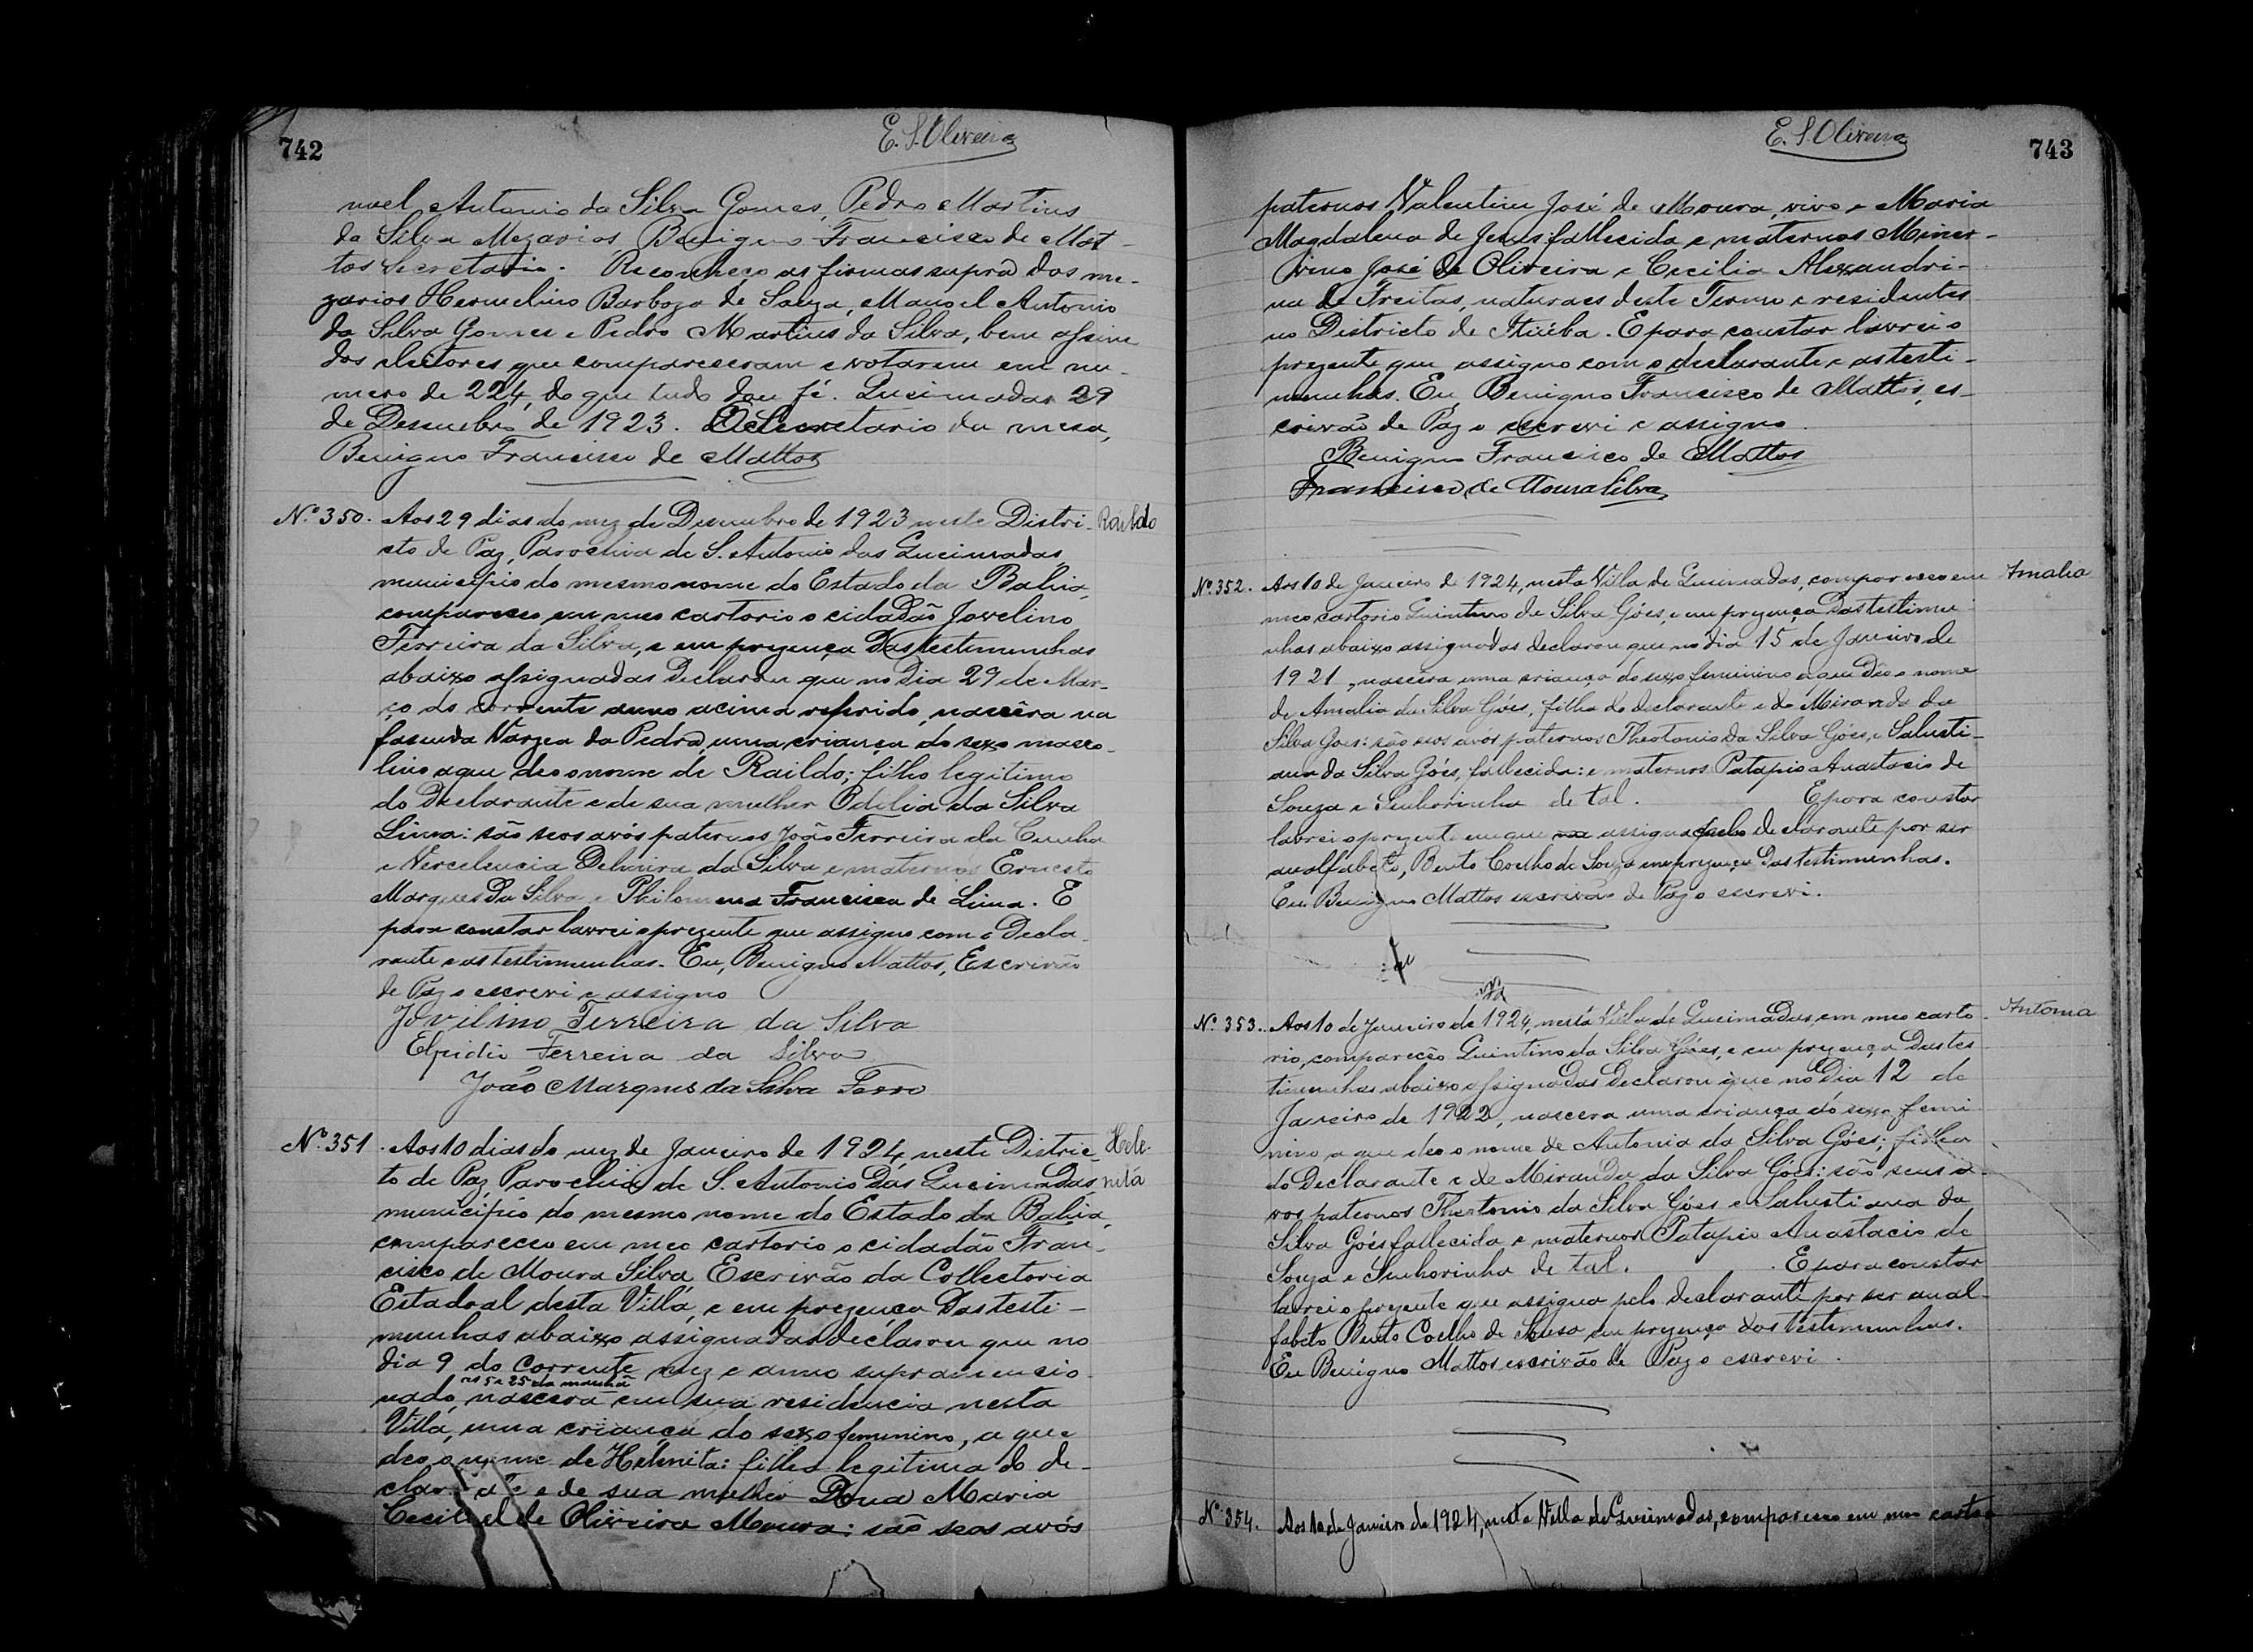 742
E. S. Oliveira
noel Antonio da Silva Gomes, Pedro Martins
da Silva Mezarios, Benigno Francisco de Mat-
tos Secretario. Reconheço as firmas supra dos me-
zarios Hermelino Barboza de Souza, Manoel Antonio
da Silva Gomes e Pedro Martins da Silva, bem assim
dos eleitores que compareceram e votarem em nu-
mero de 224, do que tudo dou fé. Queimadas 29
de Desembro de 1923. O Secretario da mesa,
Benigno Francisco de Mattos
Nº 350. Aos 29 dias do mez de Desembro de 1923 neste Distri- Raildo
cto de Paz, Parochia de S. Antonio das Queimadas,
municipio do mesmo nome do Estado da Bahia,
compareceo em meo cartorio o cidadão Jovelino
Ferreira da Silva, e em prezença das testimunhas
abaixo assignadas declarou que no dia 29 de Mar-
ço do corrente anno acima referido, nascêra na
fasenda Varzea da Pedra, uma criança do sexo mascu-
lino a que deo o nome de Raildo; filho legitimo
do declarante e de sua mulher Odilia da Silva
Lima: são seos avós paternos João Ferreira da Cunha
e Vercelencia Delmira da Silva e maternos Ernesto
Marques da Silva e Philomena Francisca de Lima. E
para constar lavrei o prezente que assigno com o decla-
rante e as testimunhas. Eu, Benigno Mattos, Escrivão
de Paz o escrevi e assigno
Jovilino Ferreira da Silva
Elpidio Ferreira da Silva
João Marques da Silva Ferro
Nº 351. Aos 10 dias do mez de Janeiro de 1924, neste Distric- Hele-
to de Paz, Parochia de S. Antonio das Queimadas, nita
municipio do mesmo nome do Estado da Bahia,
compareceo em meo cartorio o cidadão Fran-
cisco de Moura Silva, Escrivão da Collectoria
Estadoal desta Villa, e em prezença das testi-
munhas abaixo assignadas declarou que no
dia 9 do corrente mez e anno supra mencio-
as 5 e 25 da manhã
nado, nascera em sua residencia nesta
Villa, uma criança do sexo feminino, a que
deo o nome de Helenita: filha legitima do de-
e de sua mulher Dona Maria
de Oliveira Moura: são seos avós
743
E. S. Oliveira
paternos Valentim José de Moura, vivo e Maria
Magdalena de Jesus fallecida e maternos Miner-
vino José de Oliveira e Cecilia Alexandri-
na de Freitas, naturaes deste Termo e residentes
no Districto de Itiúba. E para constar lavrei o
prezente que assigno com o declarante e as testi-
munhas. Eu, Benigno Francisco de Mattos, es-
crivão de Paz o escrevi e assigno.
Benigno Francisco de Mattos
Francisco de Moura Silva
Nº 352. Aos 10 de Janeiro de 1924, nesta Villa de Queimadas, compareceo em Amalia
meo cartorio Quintino da Silva Góes, e em prezença das testimu-
nhas abaixo assignadas declarou que no dia 15 de Janeiro de
1921, nascera uma criança do sexo feminino a que dêo o nome
de Amalia da Silva Góes, filha do declarante e de Miranda da
Silva Goes: são seos avós paternos Theotonio da Silva Góes, e Salusti-
ana da Silva Góes, fallecida: e maternos Patapio Anastacio de
Souza e Senhorinha de tal. E para constar
lavrei o prezente em que assigna pelo declarante por ser
analfabeto, Bento Coelho de Souza em prezença das testimunhas.
Eu Benigno Mattos escrivão de Paz o escrevi.
Nº 353. Aos 10 de Janeiro de 1924, nesta Villa de Queimadas, em meo carto- Antonia
rio, compareceo Quintino da Silva Góes, e em prezença das tes-
timunhas abaixo assignadas declarou que no dia 12 de
Janeiro de 1922, nascera uma criança do sexo femi-
nino a que deo o nome de Antonia da Silva Góes; filha
do declarante e de Miranda da Silva Góes: são seus a-
vos paternos Theotonio da Silva Góes e Salustiana da
Silva Góes fallecida e maternos Patapio Anastacio de
Souza e Senhorinha de tal. E para constar
lavrei o prezente que assigna pelo declarante por ser anal-
fabeto Bento Coelho de Sousa em prezença das testimunhas.
Eu Benigno Mattos escrivão de Paz o escrevi.
Nº 354. Aos 10 de Janeiro de 1924, nesta Villa de Queimadas, compareceo em meo carto-